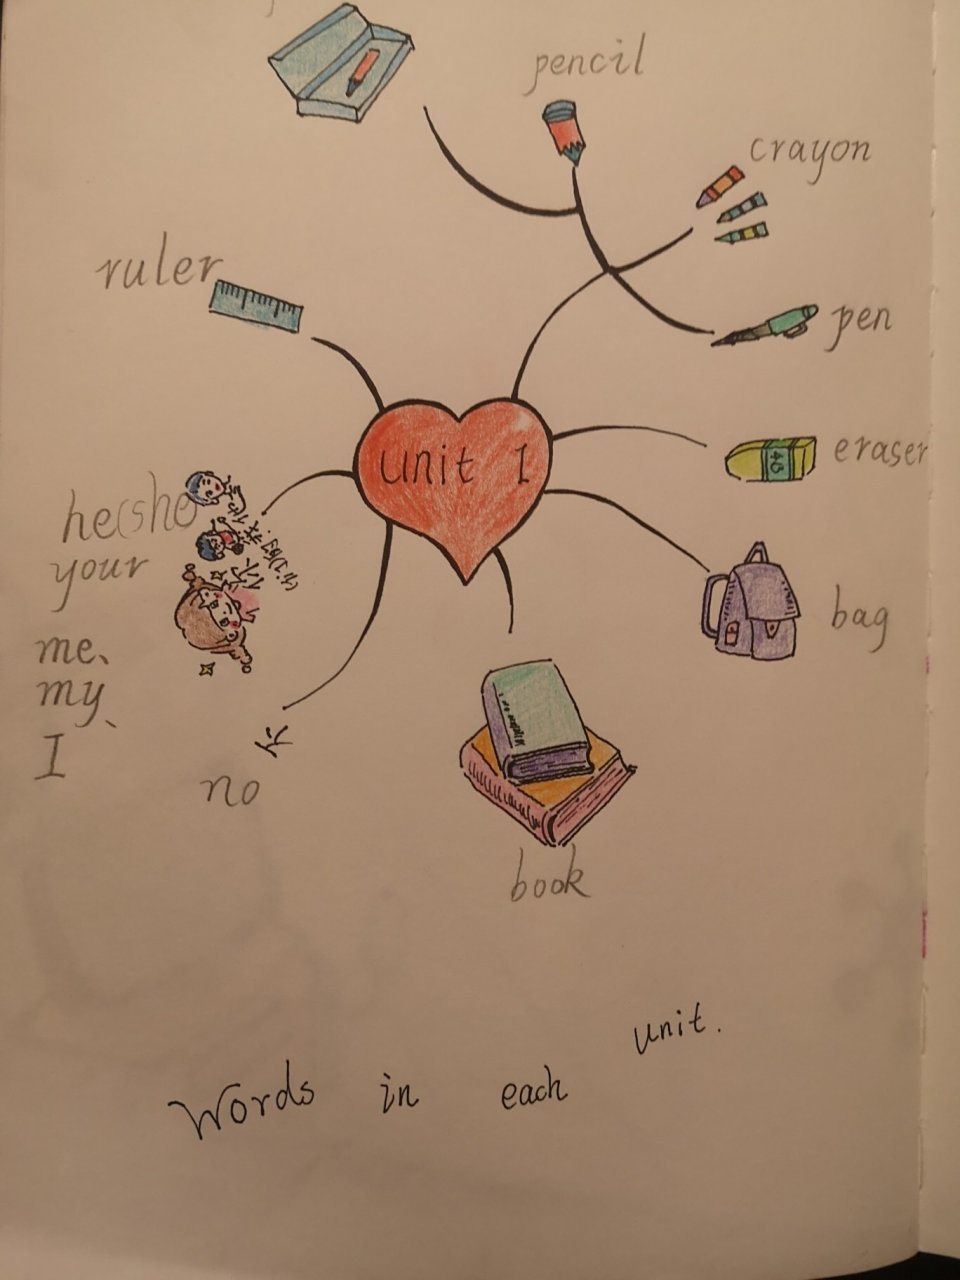 pencil
crayon
ruler
pen
unit 1
eraser
4B
he(she)
your
bag
me、
my、
I
不
no
book
Words in each unit.